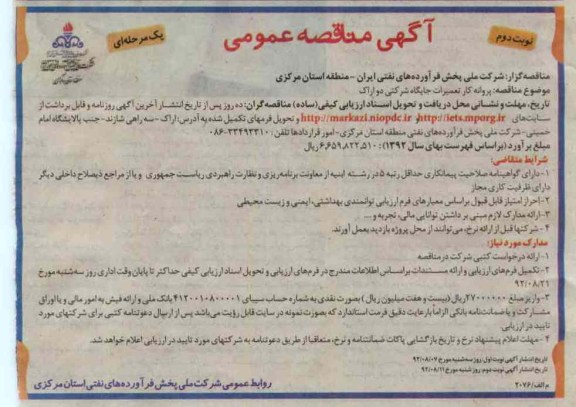 نوبت دوم
آگهی مناقصه عمومی
یک مرحله‌ای
مناقصه‌گزار: شرکت ملی پخش فرآورده‌های نفتی ایران - منطقه استان مرکزی
موضوع مناقصه: پروانه کار تعمیرات جایگاه شرکتی دو اراک
تاریخ، مهلت و نشانی محل دریافت و تحویل اسناد ارزیابی کیفی (ساده) مناقصه‌گران: ده روز پس از تاریخ انتشار آخرین آگهی روزنامه و قابل برداشت از
سایت‌های http://iets.mporg.ir و http://markazi.niopdc.ir و تحویل فرمهای تکمیل شده به آدرس: اراک - سه راهی شازند - جنب پالایشگاه امام
خمینی - شرکت ملی پخش فرآورده‌های نفتی منطقه استان مرکزی - امور قراردادها تلفن: ۳۳۴۹۲۳۱۰-۰۸۶
مبلغ برآورد (براساس فهرست بهای سال ۱۳۹۲): ۶,۶۵۹,۸۲۲,۵۱۰ ریال
شرایط متقاضی:
۱- دارای گواهینامه صلاحیت پیمانکاری حداقل رتبه ۵ در رشته ابنیه از معاونت برنامه‌ریزی و نظارت راهبردی ریاست جمهوری و یا از مراجع ذیصلاح داخلی دیگر
دارای ظرفیت کاری مجاز
۲- احراز امتیاز قابل قبول براساس معیارهای فرم ارزیابی توانمندی بهداشتی، ایمنی و زیست محیطی
۳- ارائه مدارک لازم مبنی بر داشتن توانایی مالی، تجربه و ...
۴- شرکتها قبل از ارائه نرخ، می‌توانند از محل پروژه بازدید بعمل آورند.
مدارک مورد نیاز:
۱- ارائه درخواست کتبی شرکت در مناقصه
۲- تکمیل فرم‌های ارزیابی و ارائه مستندات براساس اطلاعات مندرج در فرم‌های ارزیابی و تحویل اسناد ارزیابی کیفی حداکثر تا پایان وقت اداری روز سه‌شنبه مورخ
۹۲/۰۸/۲۱
۳- واریز مبلغ ۲۷۰۰۰۰۰۰ ریال (بیست و هفت میلیون ریال) بصورت نقدی به شماره حساب سیبای ۴۱۲۰۰۱۰۸۰۰۰۰۱ بانک ملی و ارائه فیش به امور مالی و یا اوراق
مشارکت و یا ضمانت‌نامه بانکی الزاماً با رعایت دقیق فرمت استاندارد که بصورت نمونه در سایت قابل رؤیت می‌باشد پس از ارسال دعوتنامه کتبی برای شرکتهای مورد
تایید در ارزیابی.
۴- مهلت اعلام پیشنهاد نرخ و تاریخ بازگشایی پاکات ضمانتنامه و نرخ، متعاقبا از طریق دعوتنامه به شرکتهای مورد تایید در ارزیابی اعلام خواهد شد.
تاریخ انتشار آگهی نوبت اول: روز سه‌شنبه مورخ ۹۲/۰۸/۰۷
تاریخ انتشار آگهی نوبت دوم: روز شنبه مورخ ۹۲/۰۸/۱۱
روابط عمومی شرکت ملی پخش فرآورده‌های نفتی استان مرکزی
م الف/۲۰۷۶